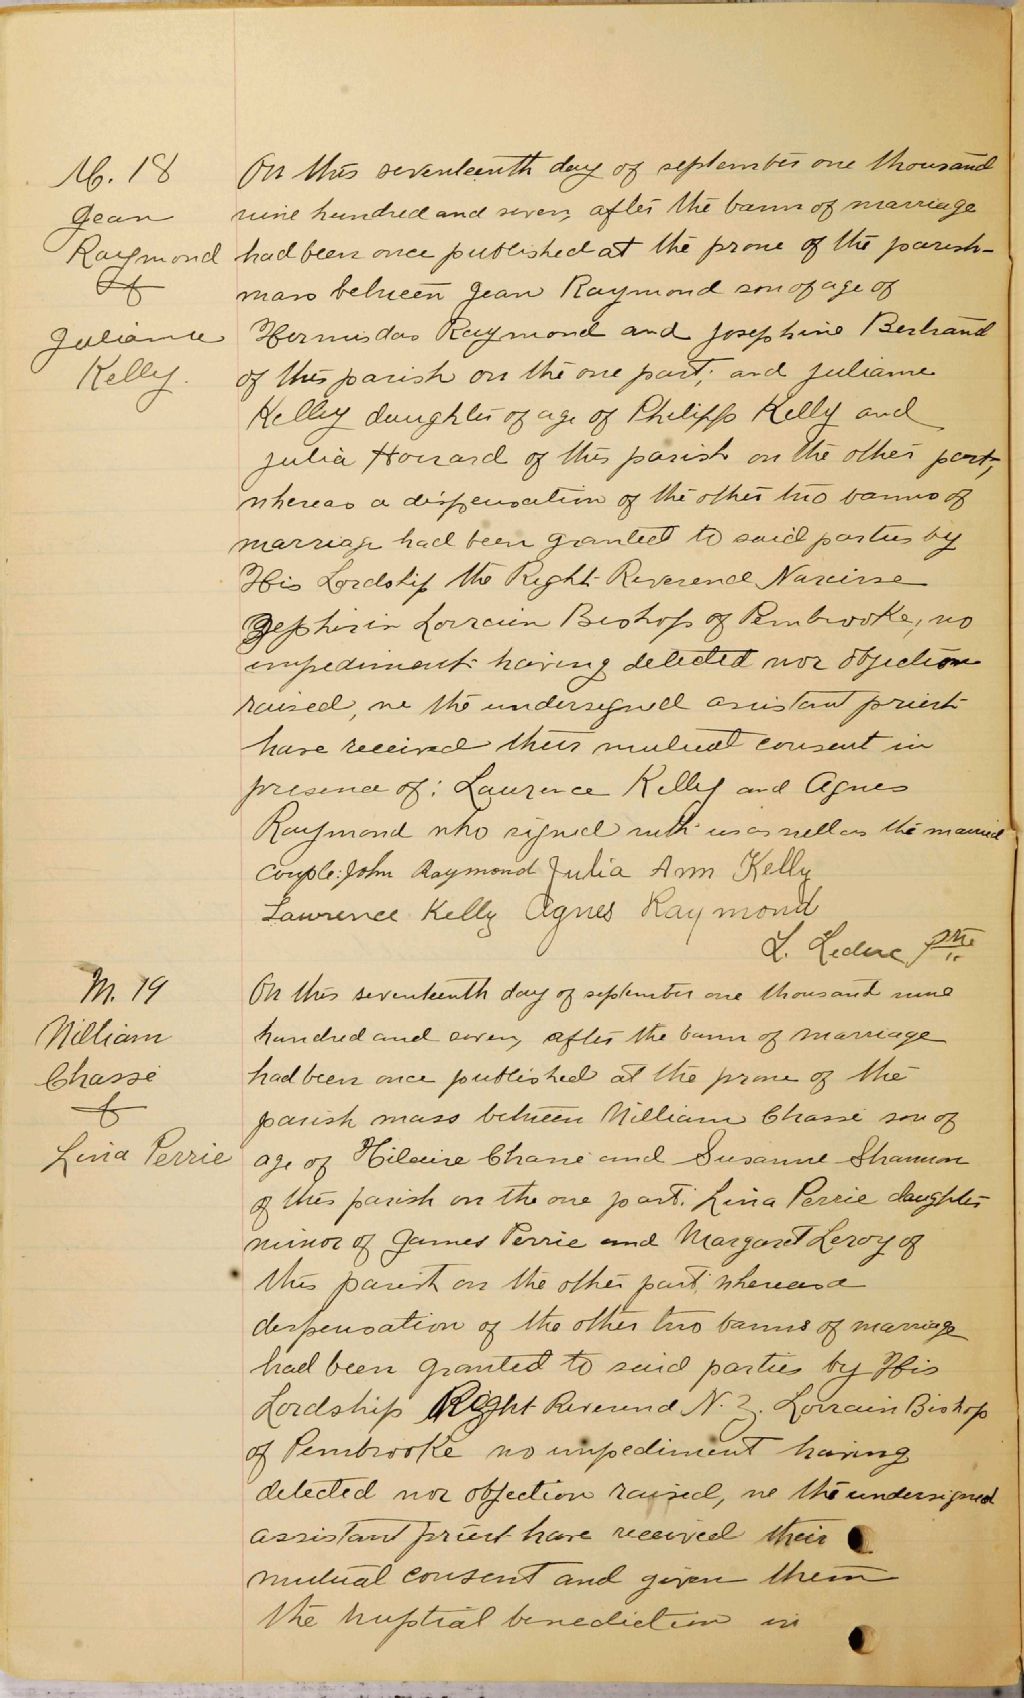 M. 18
Jean
Raymond
&
Julianne
Kelly.
On this seventeenth day of september one thousand
nine hundred and seven, after the bann of marriage
had been once published at the prone of the parish-
mass between Jean Raymond son of age of
Hormisdas Raymond and Josephine Bertrand
of this parish on the one part; and Julianne
Kelly daughter of age of Philipp Kelly and
Julia Howard of this parish on the other part,
whereas a dispensation of the other two banns of
marriage had been granted to said parties by
His Lordship the Right Reverend Narcisse
Zephirin Lorrain Bishop of Pembrooke, no
impediment having detected nor objection
raised, we the undersigned assistant priest
have received their mutual consent in
presence of: Laurence Kelly and Agnes
Raymond who signed with us as well as the married
couple: John Raymond Julia Ann Kelly
Lawrence Kelly Agnes Raymond
L. Leduc, ptre
M. 19
William
Chassé
&
Lina Perrie
On this seventeenth day of september one thousand nine
hundred and seven, after the bann of marriage
had been once published at the prone of the
parish mass between William Chassé son of
age of Hilaire Chassé and Susanne Shannon
of this parish on the one part: Lina Perrie daughter
minor of James Perrie and Margaret Leroy of
this parish on the other part; whereas a
dispensation of the other two banns of marriage
had been granted to said parties by His
Lordship Right Reverend N. Z. Lorrain Bishop
of Pembrooke no impediment having
detected nor objection raised, we the undersigned
assistant priest have received their
mutual consent and given them
the nuptial benediction in